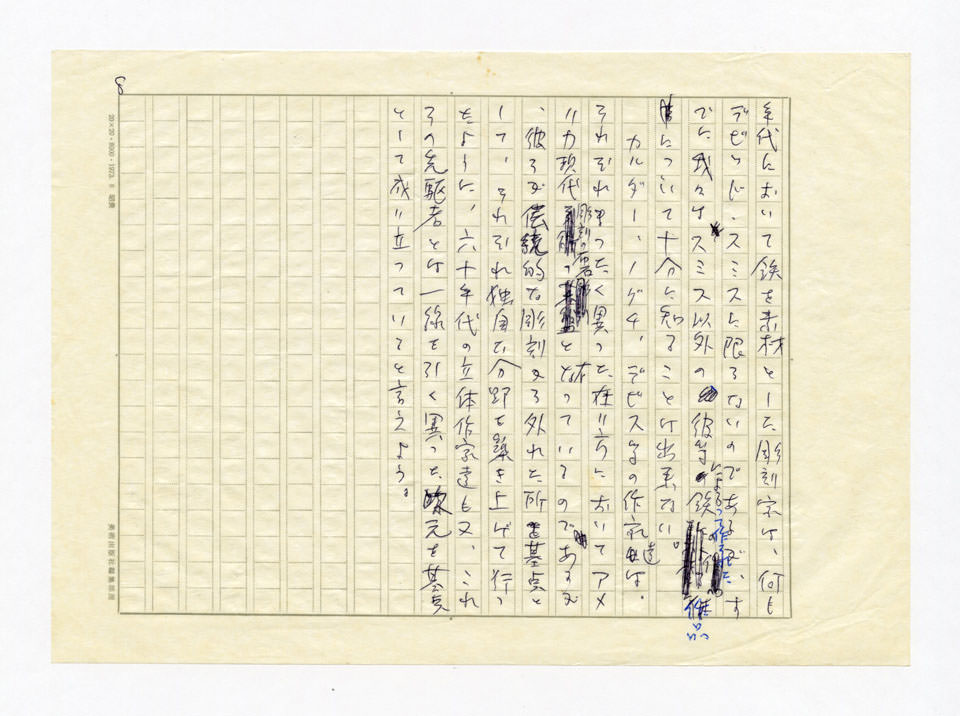 8
年代において鉄を素材とした彫刻家は、何も
デビッド・スミスに限らないのであるが、す
でに我々はスミス以外の彼等の鉄によって作られた作品
について十分に知ることは出来ない。
カルダー、ノグチ、デビス等の作家達は、
それぞれまったく異った在り方においてアメ
リカ現代彫刻の となっているのであるが
、彼らが伝統的な彫刻から外れた所を基点と
して、それぞれ独自な分野を築き上げて行っ
たように、六十年代の立体作家達も又、これ
らの先駆者とは一線を引く異った次元を基点
として成り立っていると言えよう。
20×20・8000・1973. 8 昭貴
美術出版社編集部用